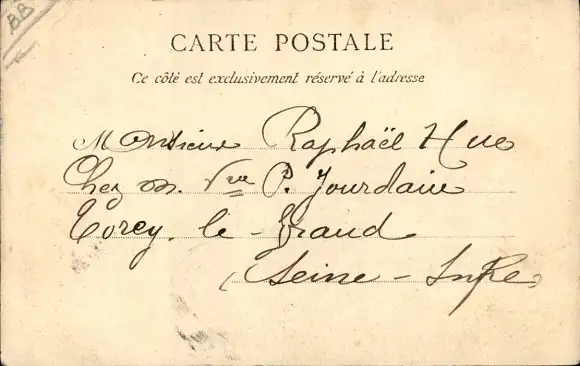 BB
CARTE POSTALE
Ce côté est exclusivement réservé à l'adresse
Monsieur Raphaël Hue
Chez m. Vve P. Jourdain
Torcy-le-Grand
(Seine-Infre)